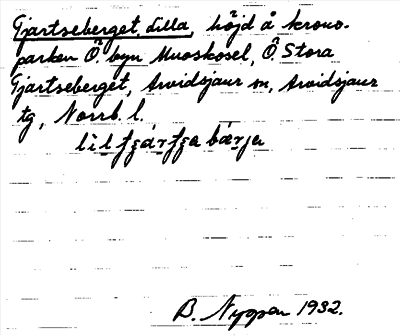 Gjartseberget, Lilla, höjd å krono-
parken Ö. byn Muoskosel, Ö. Stora
Gjartseberget, Arvidsjaur sn, Arvidsjaur
tg, Norrb. l.
B. Nygren 1932.